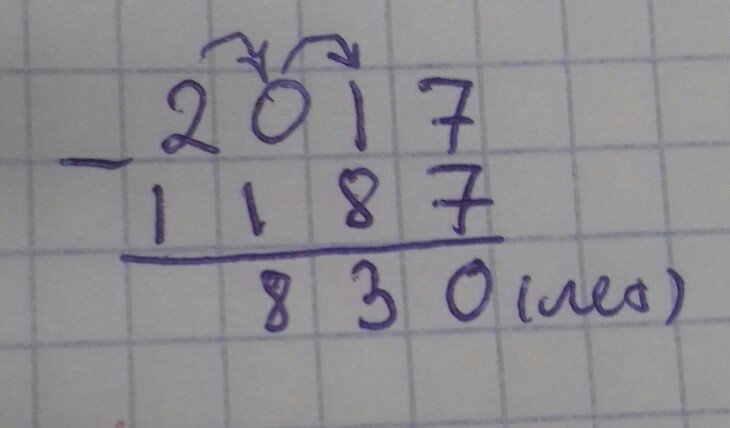 2017
- 1187
830 (лет)